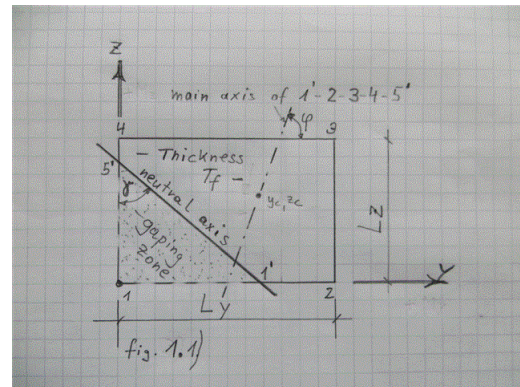 Z
main axis of 1'-2-3-4-5'
φ
4
3
- Thickness
Tf -
5'
neutral axis
γ
yc, zc
gaping
zone
Lz
1'
Y
1
2
Ly
fig. 1.1)